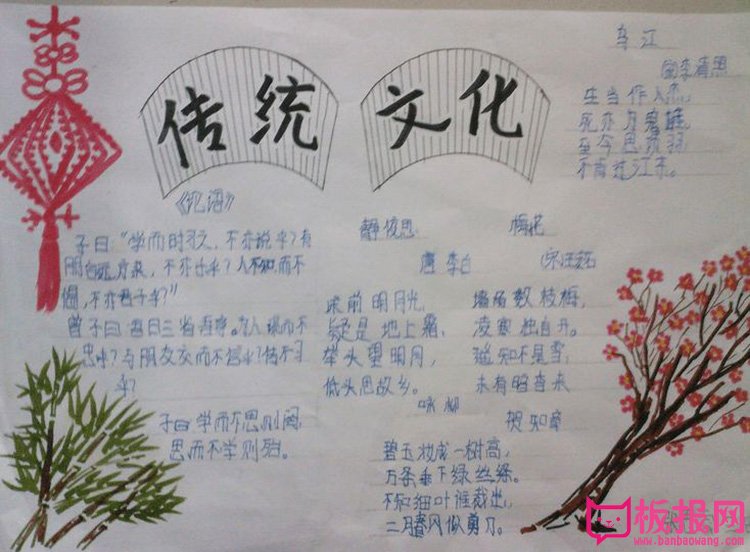 传统 文化
乌江
宋李清照
生当作人杰，
死亦为鬼雄，
至今思项羽，
不肯过江东。
《论语》
子曰："学而时习之，不亦说乎？有
朋自远方来，不亦乐乎？人不知而不
愠，不亦君子乎？"
曾子曰：吾日三省吾身。为人谋而不
忠乎？与朋友交而不信乎？传不习
乎？
子曰学而不思则罔，
思而不学则殆。
静夜思
唐 李白
床前明月光，
疑是地上霜，
举头望明月，
低头思故乡。
梅花
宋王安石
墙角数枝梅，
凌寒独自开。
遥知不是雪，
未有暗香来
咏柳
贺知章
碧玉妆成一树高，
万条垂下绿丝绦。
不知细叶谁裁出，
二月春风似剪刀。
板报网
www.banbaowang.com